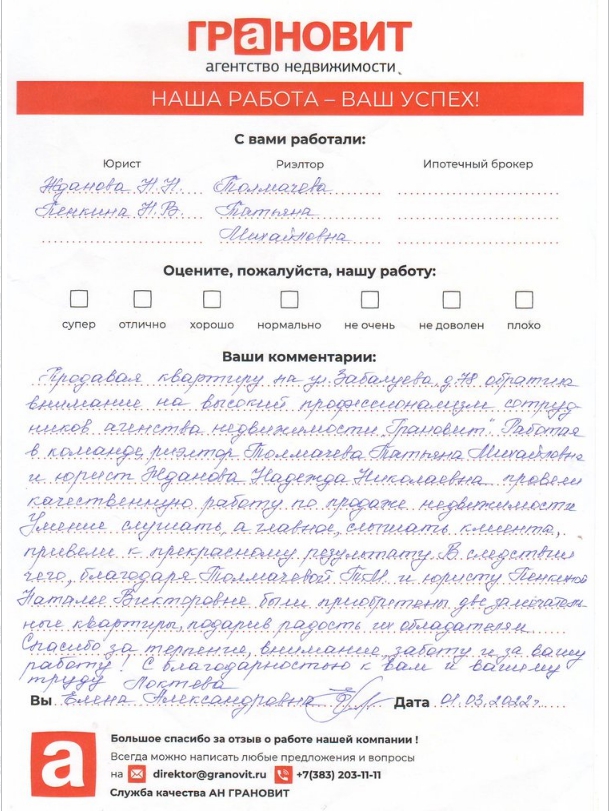 ГРаНОВИТ
агентство недвижимости
НАША РАБОТА – ВАШ УСПЕХ!
С вами работали:
Юрист Риэлтор Ипотечный брокер
Жданова Н.Н. Толмачева
Пенкина Н.В. Татьяна
Михайловна
Оцените, пожалуйста, нашу работу:
супер отлично хорошо нормально не очень не доволен плохо
Ваши комментарии:
Продавая квартиру на ул. Забалуева, д 78 обратила
внимание на высокий профессионализм сотруд
ников агенства недвижимости „Грановит". Работая
в команде, риэлтор Толмачева Татьяна Михайловна
и юрист Жданова Надежда Николаевна провели
качественную работу по продаже недвижимости
Умение слушать, а главное, слышать клиента,
привели к прекрасному результату. В следствии
чего, благодаря Толмачевой Т.М. и юристу Пенкиной
Наталье Викторовне были приобретены две замечатель
ные квартиры, подарив радость их обладателям
Спасибо за терпение, внимание, заботу и за вашу
работу! С благодарностью к вам и вашему
труду Локтева
Вы Елена Александровна Дата 01.03.2022г
а
Большое спасибо за отзыв о работе нашей компании !
Всегда можно написать любые предложения и вопросы
на direktor@granovit.ru +7(383) 203-11-11
Служба качества АН ГРАНОВИТ